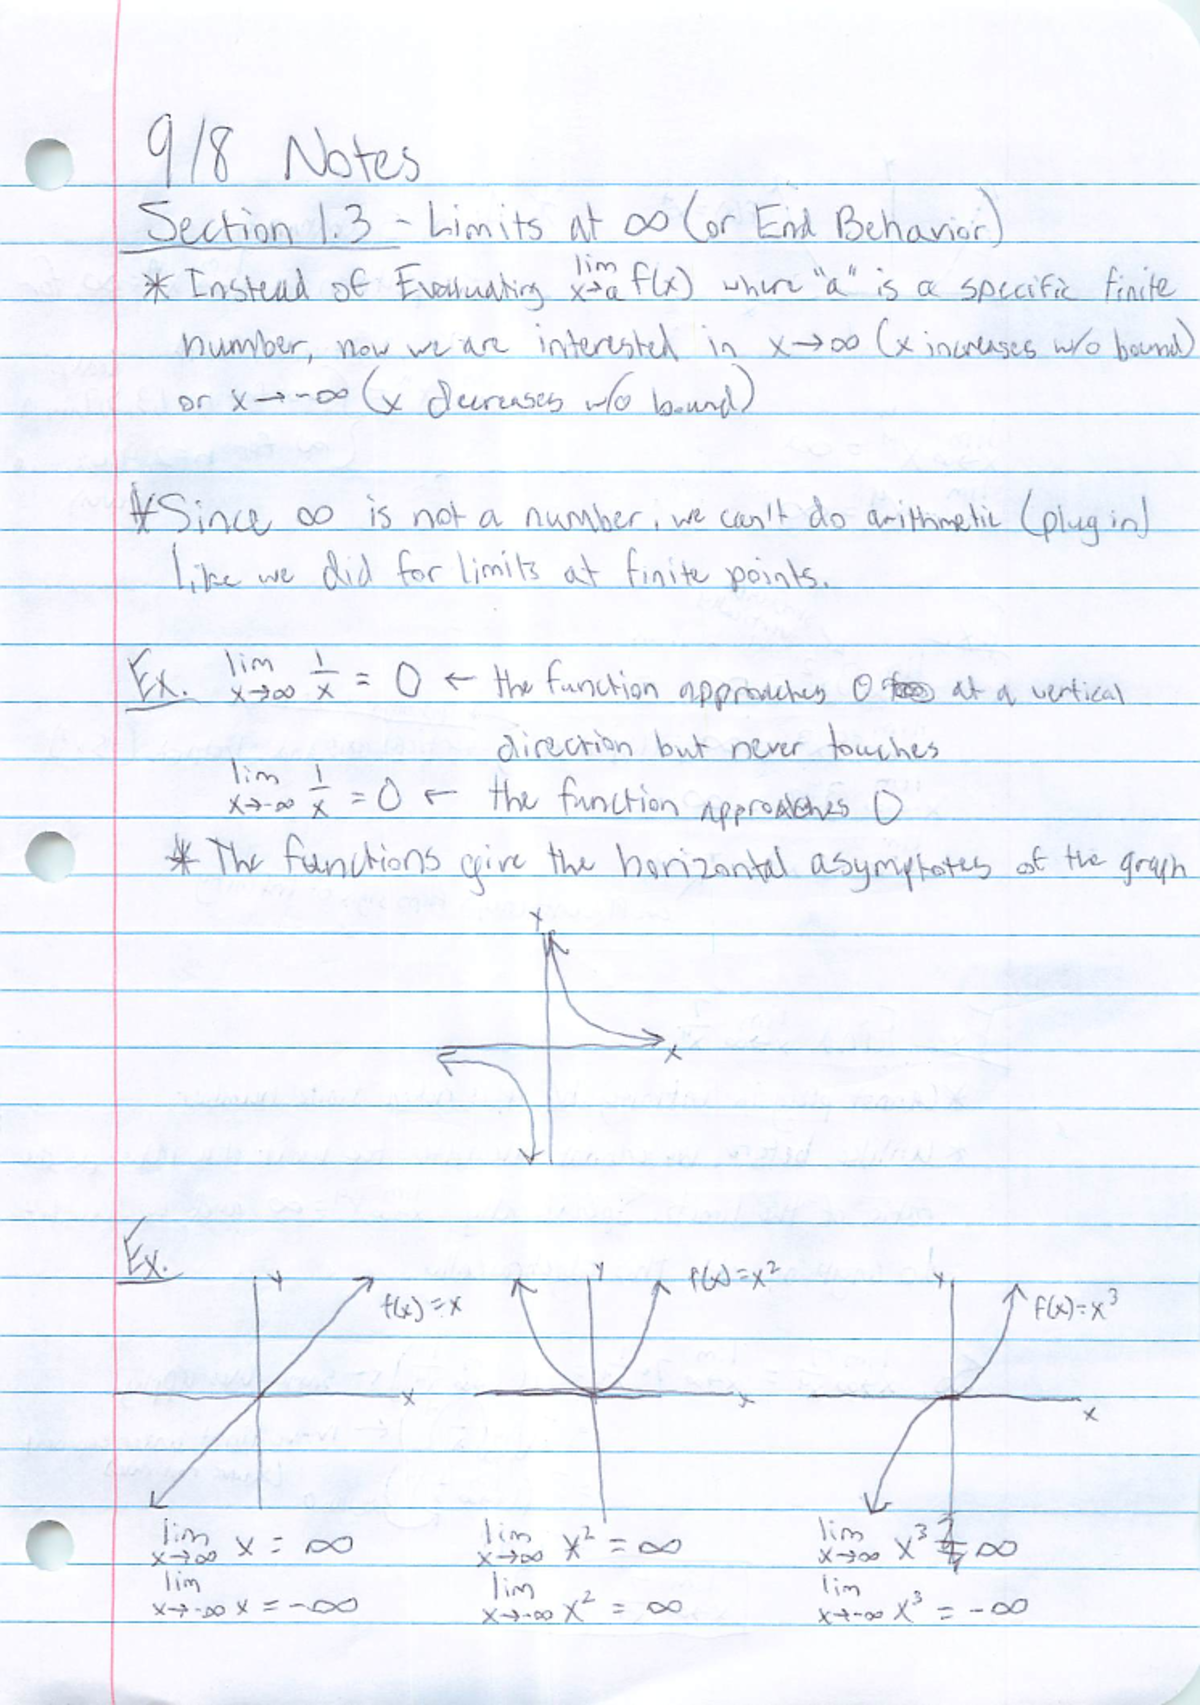 9/8 Notes
Section 1.3 - Limits at ∞ (or End Behavior)
* Instead of Evaluating lim x→a f(x) where "a" is a specific finite
number, now we are interested in x→∞ (x increases w/o bound)
or x→-∞ (x decreases w/o bound)
* Since ∞ is not a number, we can't do arithmetic (plug in)
like we did for limits at finite points.
Ex. lim x→∞ 1/x = 0 ← the function approaches 0 at a vertical
direction but never touches
lim x→-∞ 1/x = 0 ← the function approaches 0
* The functions give the horizontal asymptotes of the graph
Y
X
Ex.
Y f(x)=x Y f(x)=x² Y f(x)=x³
X X X
lim x→∞ x = ∞ lim x→∞ x² = ∞ lim x→∞ x³ = ∞
lim x→-∞ x = -∞ lim x→-∞ x² = ∞ lim x→-∞ x³ = -∞